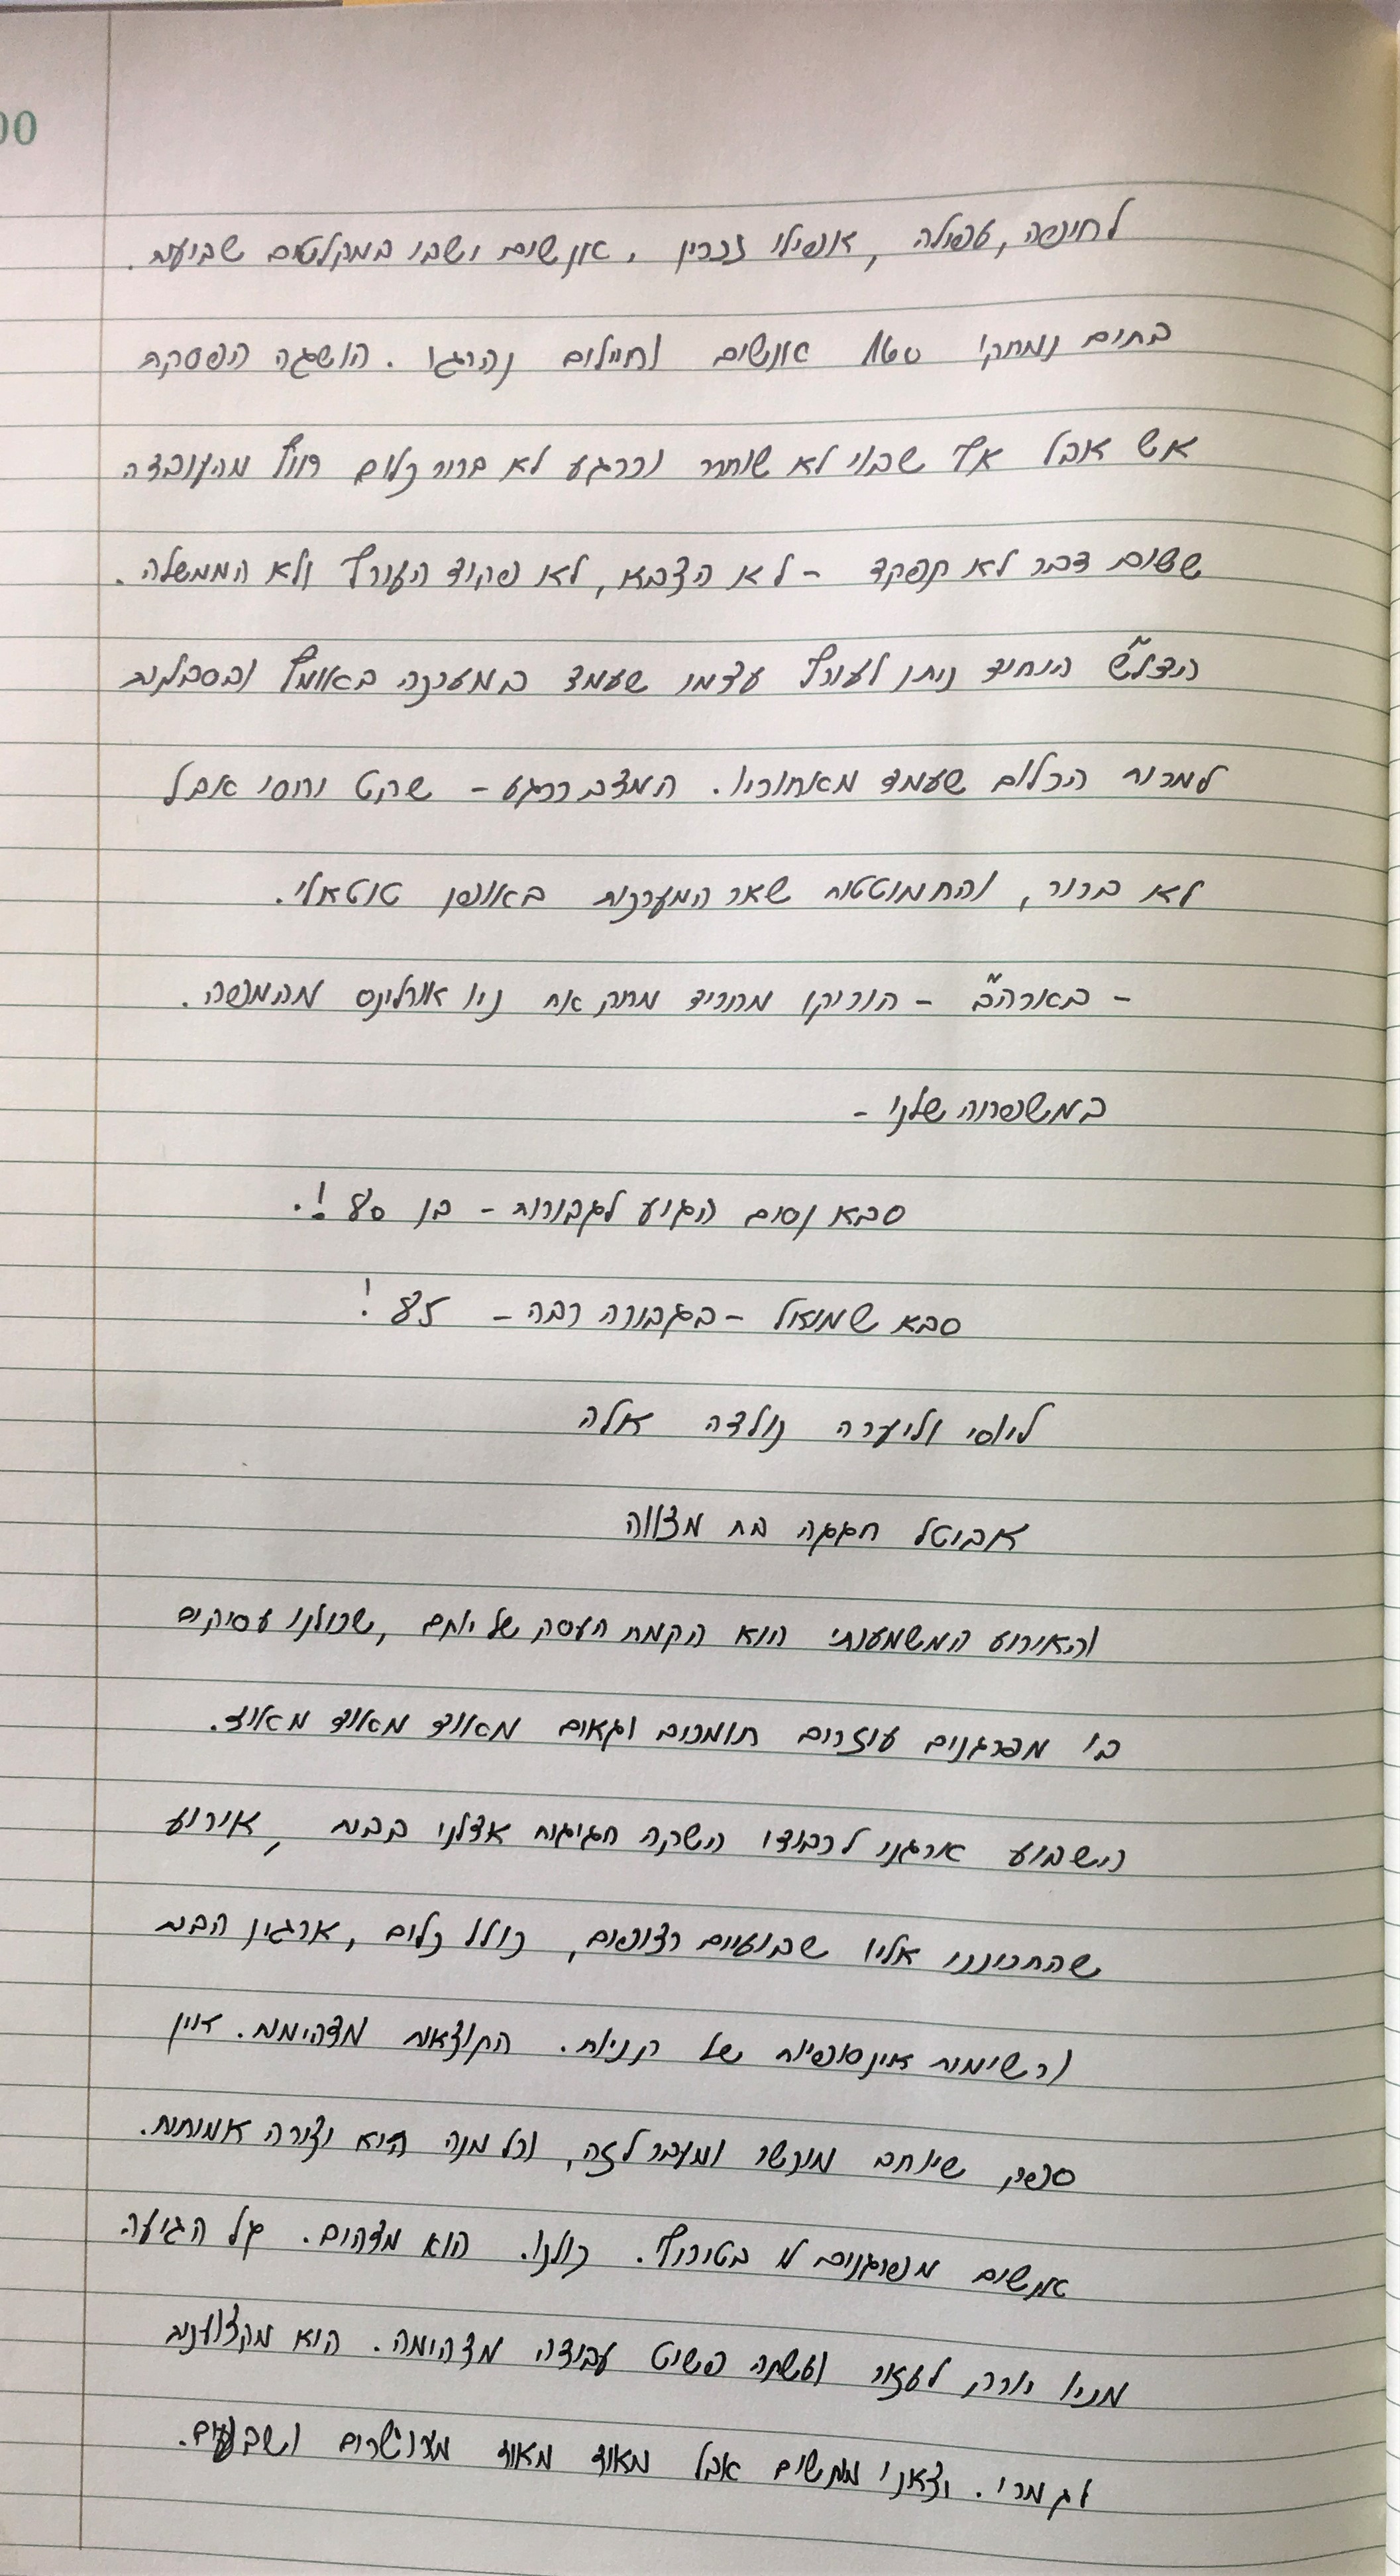 לחיפה, עפולה, אפילו זכרון. אנשים ישבו במקלטים שבועות.
בתים נמחקו 160 אנשים וחיילים נהרגו. הושגה הפסקת
אש אבל אף שבוי לא שוחרר וכרגע לא ברור כלום חוץ מהעובדה
ששום דבר לא תפקד - לא הצבא, לא פיקוד העורף ולא הממשלה.
הצל"ש היחיד ניתן לעורף עצמו שעמד במערכה באומץ ובסבלנות
למרות הכלום שעמד מאחוריו. המצב כרגע - שקט יחסי אבל
לא ברור, והתמוטטות שאר המערכות באופן טוטאלי.
- בארה"ב - הוריקן מחריד מחק את ניו אורלינס מהמפה.
במשפחה שלנו -
סבא נסים הגיע לגבורות - בן 80!.
סבא שמואל - בגבורה רבה - 85!
ליוסי וליערה נולדה אלה
אביטל חגגה בת מצווה
והאירוע המשמעותי הוא הקמת העסק של יותם, שכולנו עסיקים
בו מפרגנים עוזרים תומכים וגאים מאוד מאוד מאוד.
השבוע ארגנו לכבודו השקה חגיגית אצלנו בבית, אירוע
שהתכוננו אליו שבועיים רצופים, כולל כלים, ארגון הבית
ורשימות אינסופיות של קניות. התוצאות מדהימות. אין
ספק, שיותם מוכשר ומעבר לזה, וכל מנה היא יצירה אמיתית.
אנשים מפרגנים לו בטירוף. כולנו. הוא מדהים. טל הגיעה
מניו יורק לעזור ועשתה פשוט עבודה מדהימה. היא מקצוענית
לגמרי. יצאנו מתשים אבל מאוד מאוד מאושרים ושבעים.